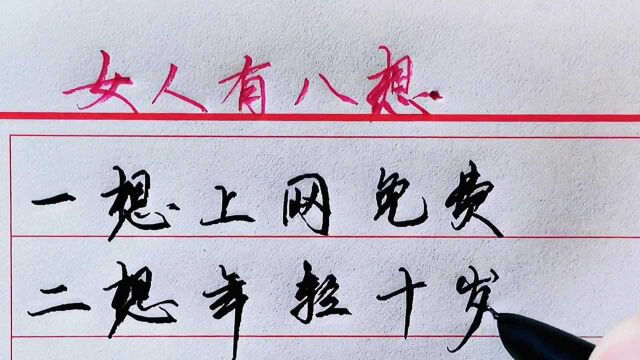 女人有八想
一想上网免费
二想年轻十岁